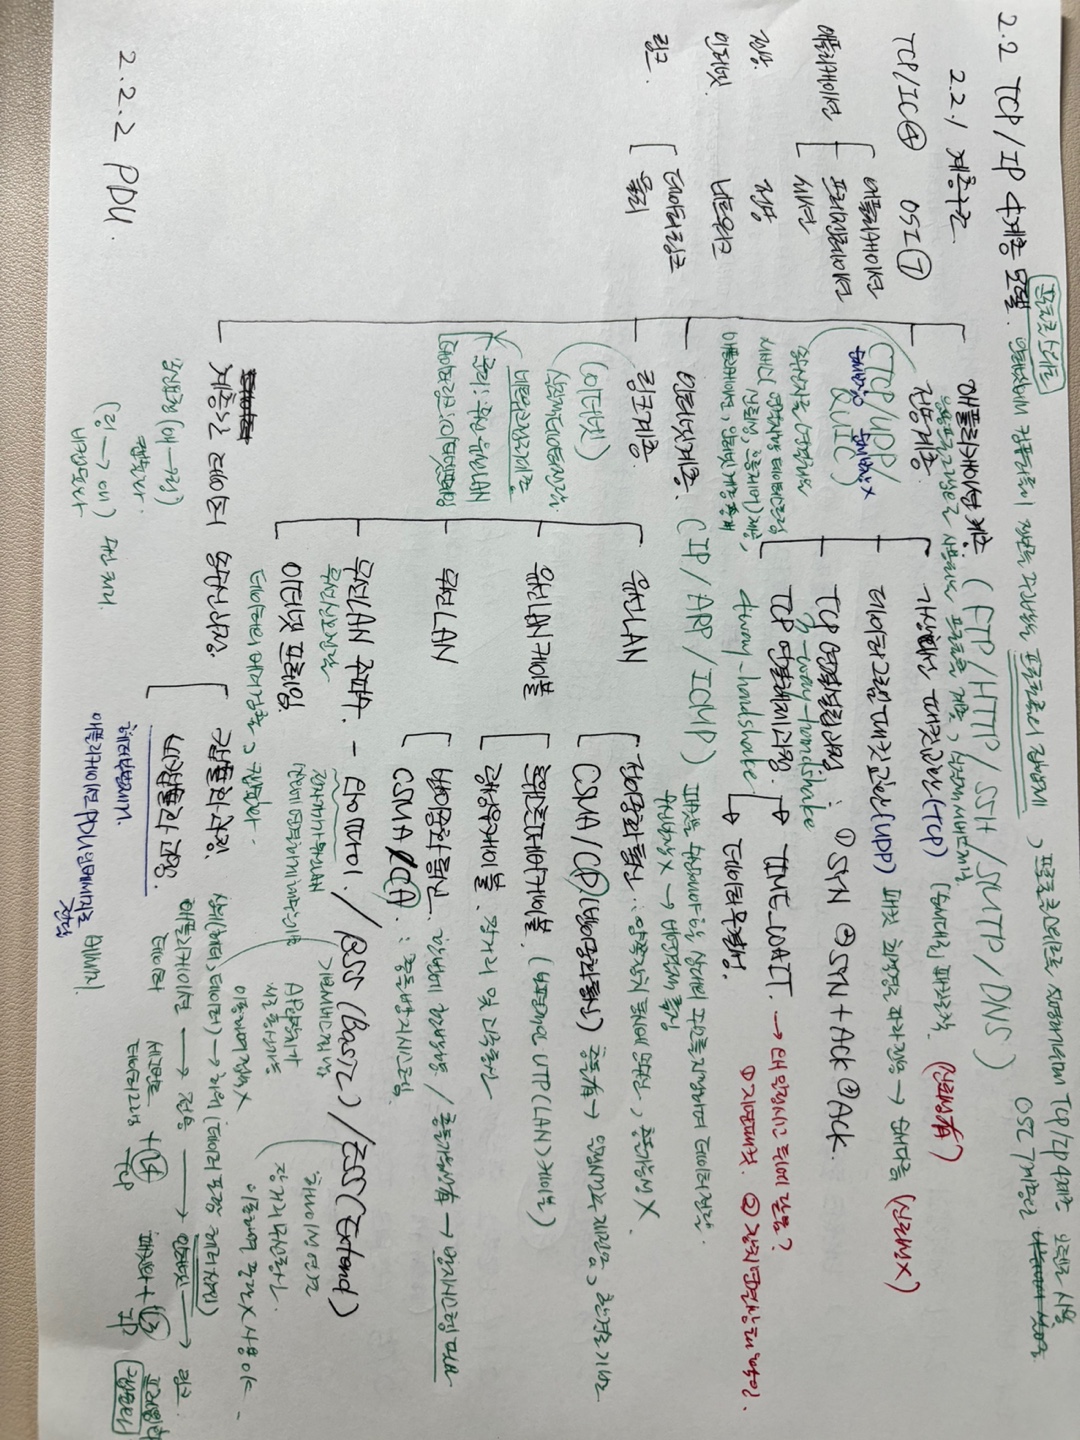 프로토콜 스위트
2.2 TCP/IP 4계층 모델. 인터넷에서 컴퓨터들이 정보를 주고받는 프로토콜의 집합체, 프로토콜 스위트를 설명하기위해 TCP/IP 4계층 모델로 사용
OSI 7계층으로
2.2.1 계층구조
TCP/IC④ OSI⑦
애플리케이션
애플리케이션
프레젠테이션
세션
전송. 전송
인터넷. 네트워크
링크.
데이터링크
물리
애플리케이션 계층. (FTP/HTTP/SSH/SMTP/DNS)
응용프로그램으로 사용되는 프로토콜 계층, 실질적 서비스제공
전송계층.
(TCP/UDP/
순서보장O 순서보장X
QUIC)
송수신자를 연결하는
서비스(연결지향 데이터스트림,
신뢰성, 흐름제어)제공,
애플리케이션, 인터넷 계층 중계
가상회선 패킷교환(TCP) (순서대로) 패킷도착. (신뢰성有)
데이터그램 패킷 교환(UDP) 패킷 최적경로 따라 전송 → 순서다름 (신뢰성X)
TCP 연결성립과정. : ① SYN ② SYN + ACK ③ ACK.
3-way-handshake
TCP 연결해제과정. → TIME_WAIT. → 왜 일정시간 뒤에 닫음?
4way_handshake
① 지연패킷. ② 장치연결상태확인.
→ 데이터무결성.
인터넷계층. (IP/ARP/ICMP) 패킷을 수신해야 할 상대의 주소를 지정하며 데이터전달.
수신보장X → 비연결적 특징
링크계층.
(이더넷)
실질적데이터전달.
네트워크접근계층
물리: 무선·유선LAN
데이터링크: 이더넷프레임
유선LAN
전이중화 통신 : 양쪽장치 동시에 송수신, 충돌가능성X.
CSMA/CD.(반이중화통신) 충돌有 → 일정시간후 재전송, 한경로 기반
유선LAN케이블
트위스트페어케이블. (보편적인 UTP(LAN)케이블)
광섬유케이블. 장거리 및 고속통신
무선LAN
반이중화 통신. 한번에 한방향 / 충돌가능성有 → 방지시스템 필요
CSMA/CA. : 충돌방지시스템.
무선LAN 주파수. - 와이파이. / BSS (Basic) / ESS (Extend)
무선신호전달
전자기기가 무선LAN
신호에 연결하게 해주는기술
기본서비스집합
AP와장치가
서로 통신가능
이동하며 접속X
하나이상 연결
장거리 무선통신.
이동하면 중단X 사용 OK.
이더넷 프레임.
데이터의 에러검출, 캡슐화.
계층간 데이터 송수신과정.
송신요청(애→링)
캡슐화.
(링→애) 수신 처리.
비캡슐화
캡슐화 과정. 상위(헤더, 데이터) → 하위(데이터 포함 헤더삽입)
애플리케이션 → 전송 → 인터넷 → 링크.
데이터 세그먼트 데이터그램 + L4 TCP 패킷화 + L3 IP 프레임화 캡슐화
비캡슐화 과정.
헤더부분제거.
애플리케이션 PDU인 메세지로 메세지.
전달
2.2.2 PDU.